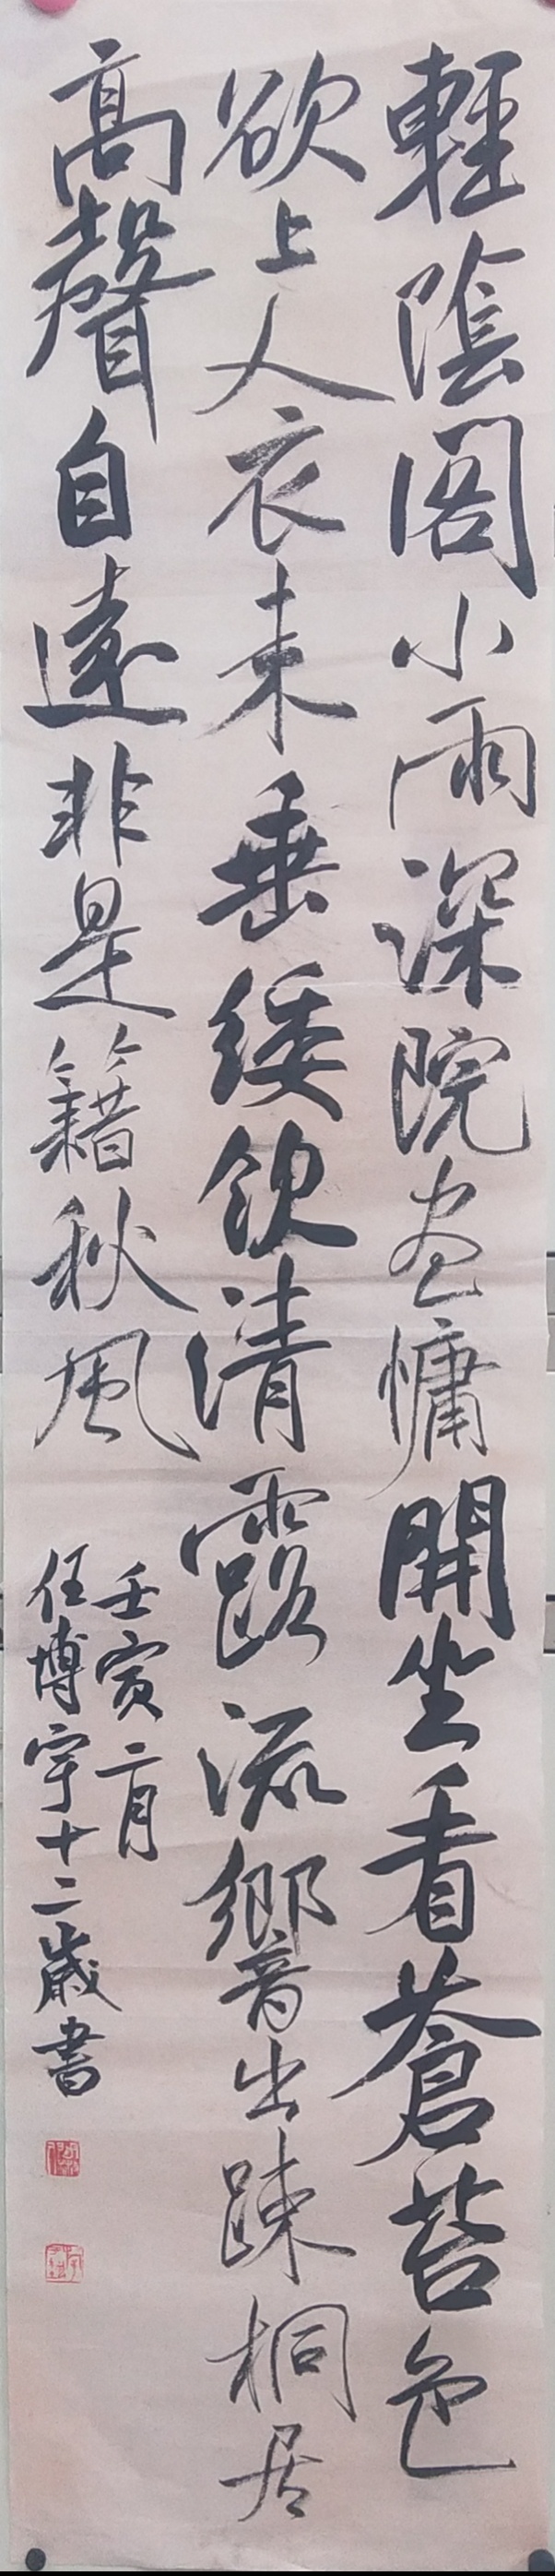 輕陰閣小雨深院晝慵開坐看蒼苔色
欲上人衣来垂緌飲清露流響出踈桐居
高聲自遠非是籍秋風
壬寅二月
任博宇十二歲書